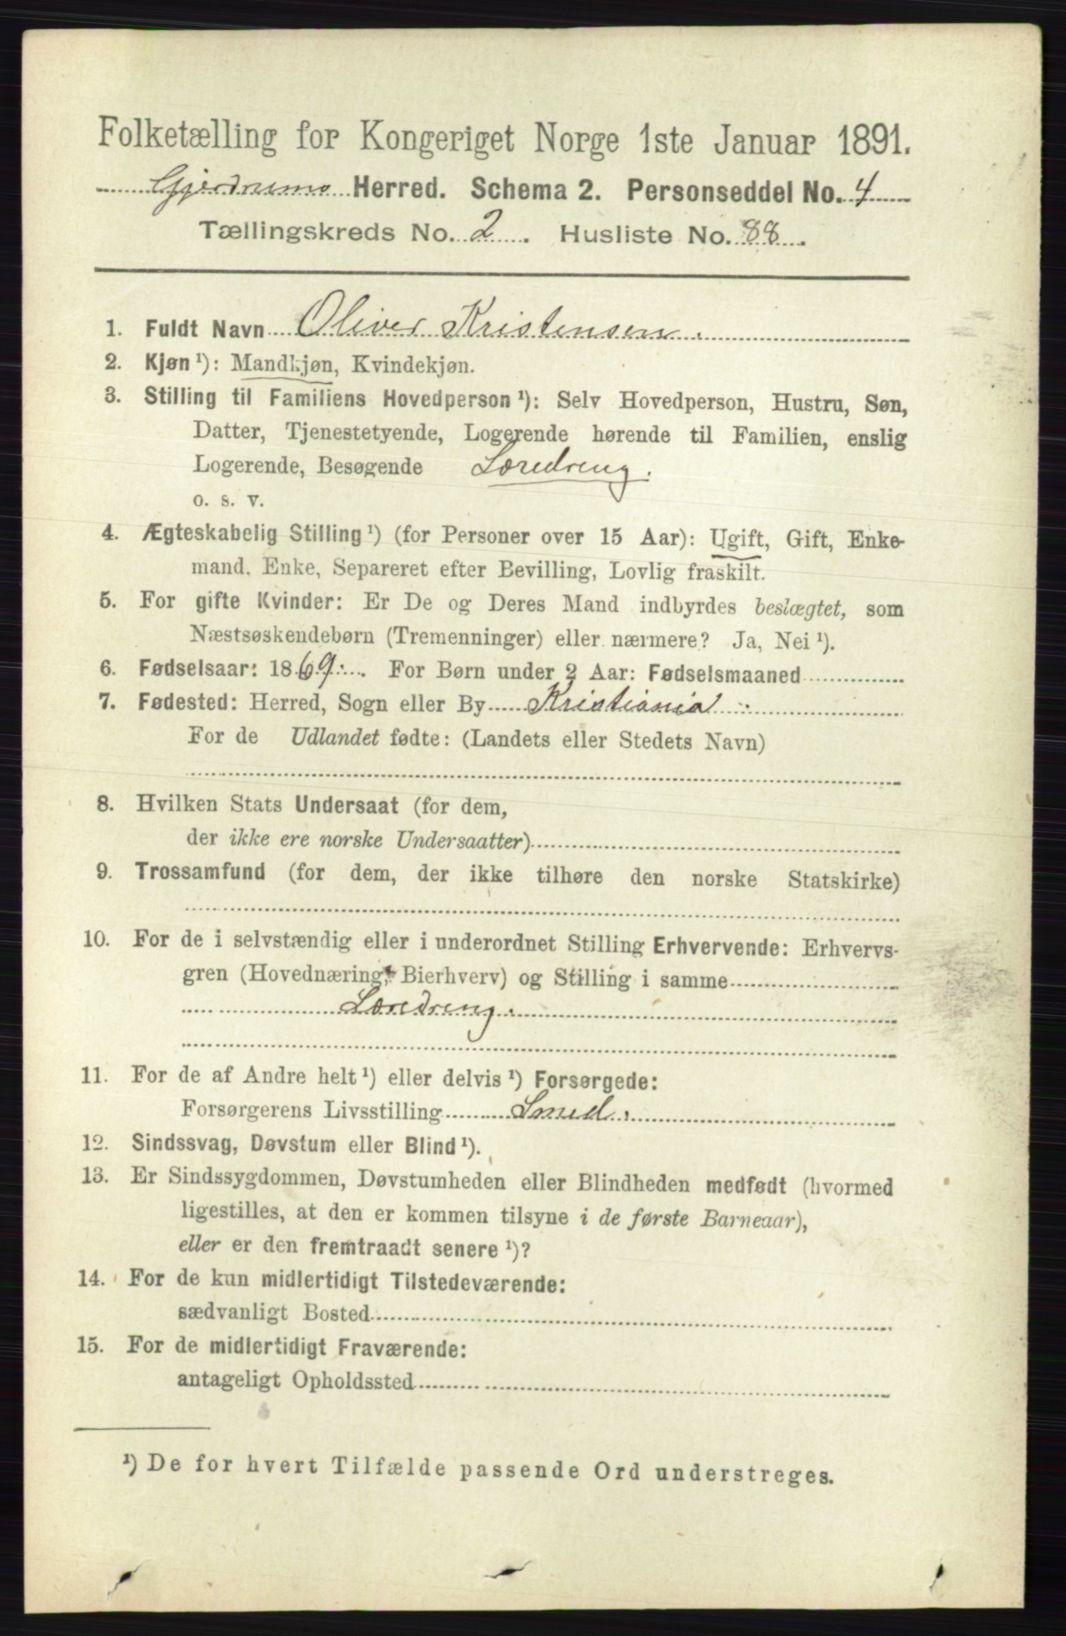 Folketælling for Kongeriget Norge 1ste Januar 1891.
Gjerdrums Herred. Schema 2. Personseddel No. 4
Tællingskreds No. 2. Husliste No. 88.
1. Fuldt Navn Oliver Kristensen.
2. Kjøn ¹): Mandkjøn, Kvindekjøn.
3. Stilling til Familiens Hovedperson ¹): Selv Hovedperson, Hustru, Søn,
Datter, Tjenestetyende, Logerende hørende til Familien, enslig
Logerende, Besøgende Læredreng.
o. s. v.
4. Ægteskabelig Stilling ¹) (for Personer over 15 Aar): Ugift, Gift, Enke-
mand, Enke, Separeret efter Bevilling, Lovlig fraskilt.
5. For gifte Kvinder: Er De og Deres Mand indbyrdes beslægtet, som
Næstsøskendebørn (Tremenninger) eller nærmere? Ja, Nei ¹).
6. Fødselsaar: 1869. For Børn under 2 Aar: Fødselsmaaned
7. Fødested: Herred, Sogn eller By Kristiania
For de Udlandet fødte: (Landets eller Stedets Navn)
8. Hvilken Stats Undersaat (for dem,
der ikke ere norske Undersaatter)
9. Trossamfund (for dem, der ikke tilhøre den norske Statskirke)
10. For de i selvstændig eller i underordnet Stilling Erhvervende: Erhvervs-
gren (Hovednæring, Bierhverv) og Stilling i samme
Læredreng.
11. For de af Andre helt ¹) eller delvis ¹) Forsørgede:
Forsørgerens Livsstilling Smed.
12. Sindssvag, Døvstum eller Blind ¹).
13. Er Sindssygdommen, Døvstumheden eller Blindheden medfødt (hvormed
ligestilles, at den er kommen tilsyne i de første Barneaar),
eller er den fremtraadt senere ¹)?
14. For de kun midlertidigt Tilstedeværende:
sædvanligt Bosted
15. For de midlertidigt Fraværende:
antageligt Opholdssted
¹) De for hvert Tilfælde passende Ord understreges.